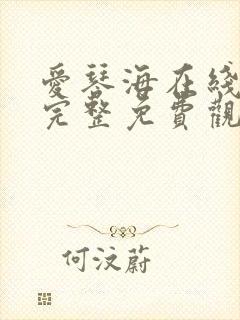 愛琴海在綫
完整免費觀
何汶蔚